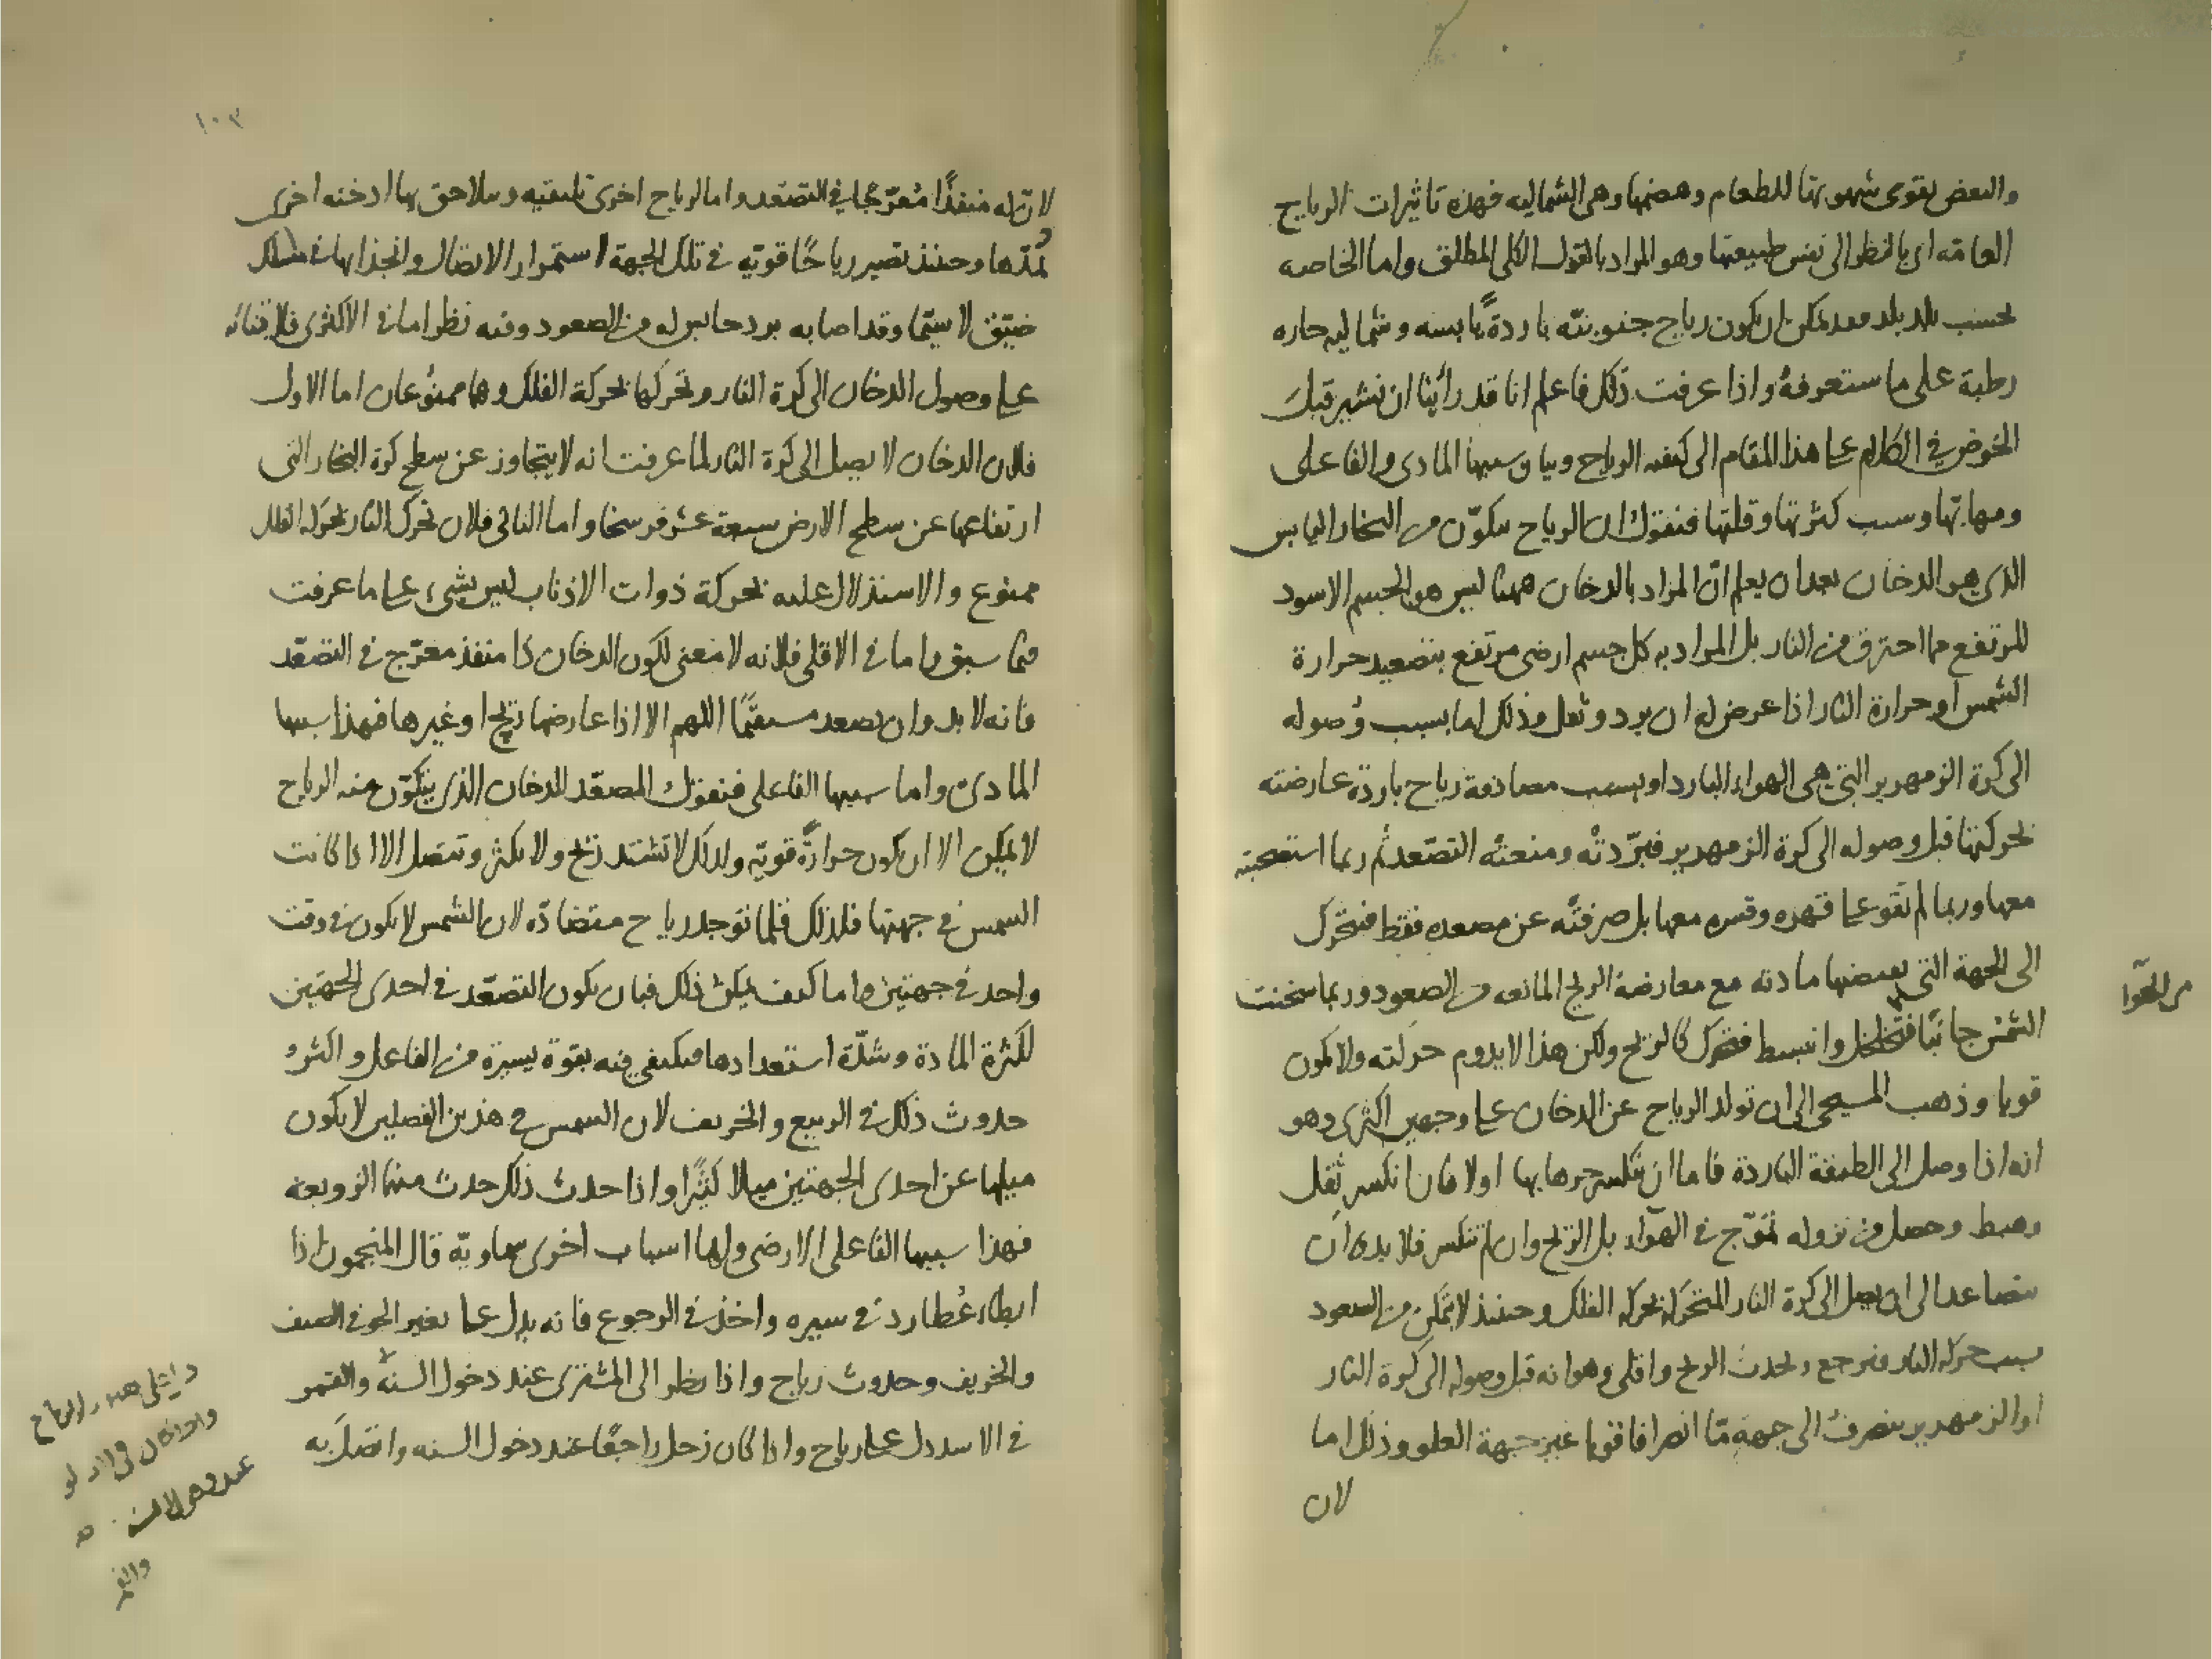 والبعض يقوى شهوتها للطعام وهضمها وهى الشماليه فهذه تاثيرات الرياح
العامّه اى بالنظر الى نفس طبيعتها وهو المراد بالقول الكلى المطلق واما الخاصه
بحسب بلد بلد فقد يمكن ان يكون رياح جنوبيّه باردةً يابسه وشماليه حاره
رطبة على ما ستعرفهُ واذا عرفت ذلك فاعلم انا قد رأينا ان نشير قبل
الخوض فى الكلام على هذا المقام الى كيفيه الرياح وبيان سببها المادى والفاعلى
ومهابّها وسبب كثرتها وقلتها فنقول ان الرياح يتكوّن من البخار اليابس
الذى هو الدخان بعد ان يعلم انّ المراد بالدخان ههنا ليس هو الجسم الاسود
المرتفع مما احترق من النار بل المراد به كل جسم ارضى مرتفع بتصعيد حرارة
الشمس او حرارة النار اذا عرض له ان برد وثقل وذلك اما بسبب وُصوله
الى كرة الزمهرير التى هى الهواء البارد او بسبب مصادفة رياح باردة عارضته
بحركتها قبل وصوله الى كرة الزمهرير فبرّدتْه ومنعتْه التصعّد ثم ربما استصحبته
معها وربما لم تقو على قهره وقسره معها بل صرفتْه عن مصعده فقط فتحرك
الى الجهة التى يقتضيها مادته مع معارضة الريح المانعه من الصعود وربما سخنت
الشمس جانبًا فتخلخل وانبسط فتحرك كالريح ولكن هذا لا يدوم حركته ولا يكون
من الهوآ
قويا وذهب المسيحى الى ان تولد الرياح عن الدخان على وجهين اكثرى وهو
انه اذا وصل الى الطبقة الباردة فاما ان ينكسر حرها بها اولا فان انكسر ثقل
وهبط وحصل من نزوله تموّج فى الهوآء بل الريح وان لم تنكسر فلا بد له ان
يتصاعد الى ان يصل الى كرة النار المتحركة بحركه الفلك وحينئذ لا يتمكن من الصعود
بسبب حركه النار فيرجع ويحدث الريح واقلى وهو انه قبل وصوله الى كرة النار
او الزمهرير ينصرف الى جهةٍ مّا انصرافا قويا غير جهة العلو وذلك اما
لان
١٠٣
لان له منفذًا مُعرّجا فى التصعّد واما لرياح اخرى تلتقيه وتتلاحق بها ادخنه اخرى
تُمدّها وحينئذ تصير رياحًا قويّه فى تلك الجهة لاستمرار الاتصال وانجذابها فى مسلك
ضيّق لا سيّما وقد اصابه برد حابس له من الصعود وفيه نظر اما فى الاكثرى فلابتنائه
على وصول الدخان الى كرة النار وتحركها بحركة الفلك وهما ممنُوعان اما الاول
فلان الدخان لا يصل الى كرة النار لما عرفت انه لا يتجاوز عن سطح كرة البخار التى
ارتفاعها عن سطح الارض سبعة عشر فرسخا واما الثانى فلان تحرك النار بحركه الفلك
ممنوع والاستدلال عليه بحركة ذوات الاذناب ليس بشىء على ما عرفت
فيما سبق واما فى الاقلى فلانه لا معنى لكون الدخان ذا منفذ معرّج فى التصعّد
فانه لا بد وان يصعد مستقيمًا اللهم الا اذا عارضها ريح او غيرها فهذا سببها
المادى واما سببها الفاعلى فنقول المصعّد للدخان الذى يتكوّن منه الرياح
لا يمكن الا ان يكون حرارةً قويّه ولذلك لا تشتد ريح ولا يكثر وتتصل الا اذا كانت
الشمس فى جهتها فلذلك قلما توجد رياح متضادّه لان الشمس لا يكون فى وقت
واحد فى جهتين واما كيف يمكن ذلك فبان يكون التصعّد فى احدى الجهتين
لكثرة المادة وشدّة استعدادها فيكتفى فيه بقوة يسيرة من الفاعل واكثر
حدوث ذلك فى الربيع والخريف لان الشمس فى هذين الفصلين لا يكون
ميلها عن احدى الجهتين ميلا كثيرًا واذا حدث ذلك حدث منهما الزوبعه
فهذا سببها الفاعلى الارضى ولها اسباب اخرى سماويّه قال المنجمون اذا
ابطاء عُطارد فى سيره واخذ فى الرجوع فانه يدل على تغير الجو فى الصيف
والخريف وحدوث رياح واذا نظر الى المشترى عند دخول السنه والقمر
فى الاسد دل على رياح واذا كان زحل راجعًا عند دخول السنه واتصل به